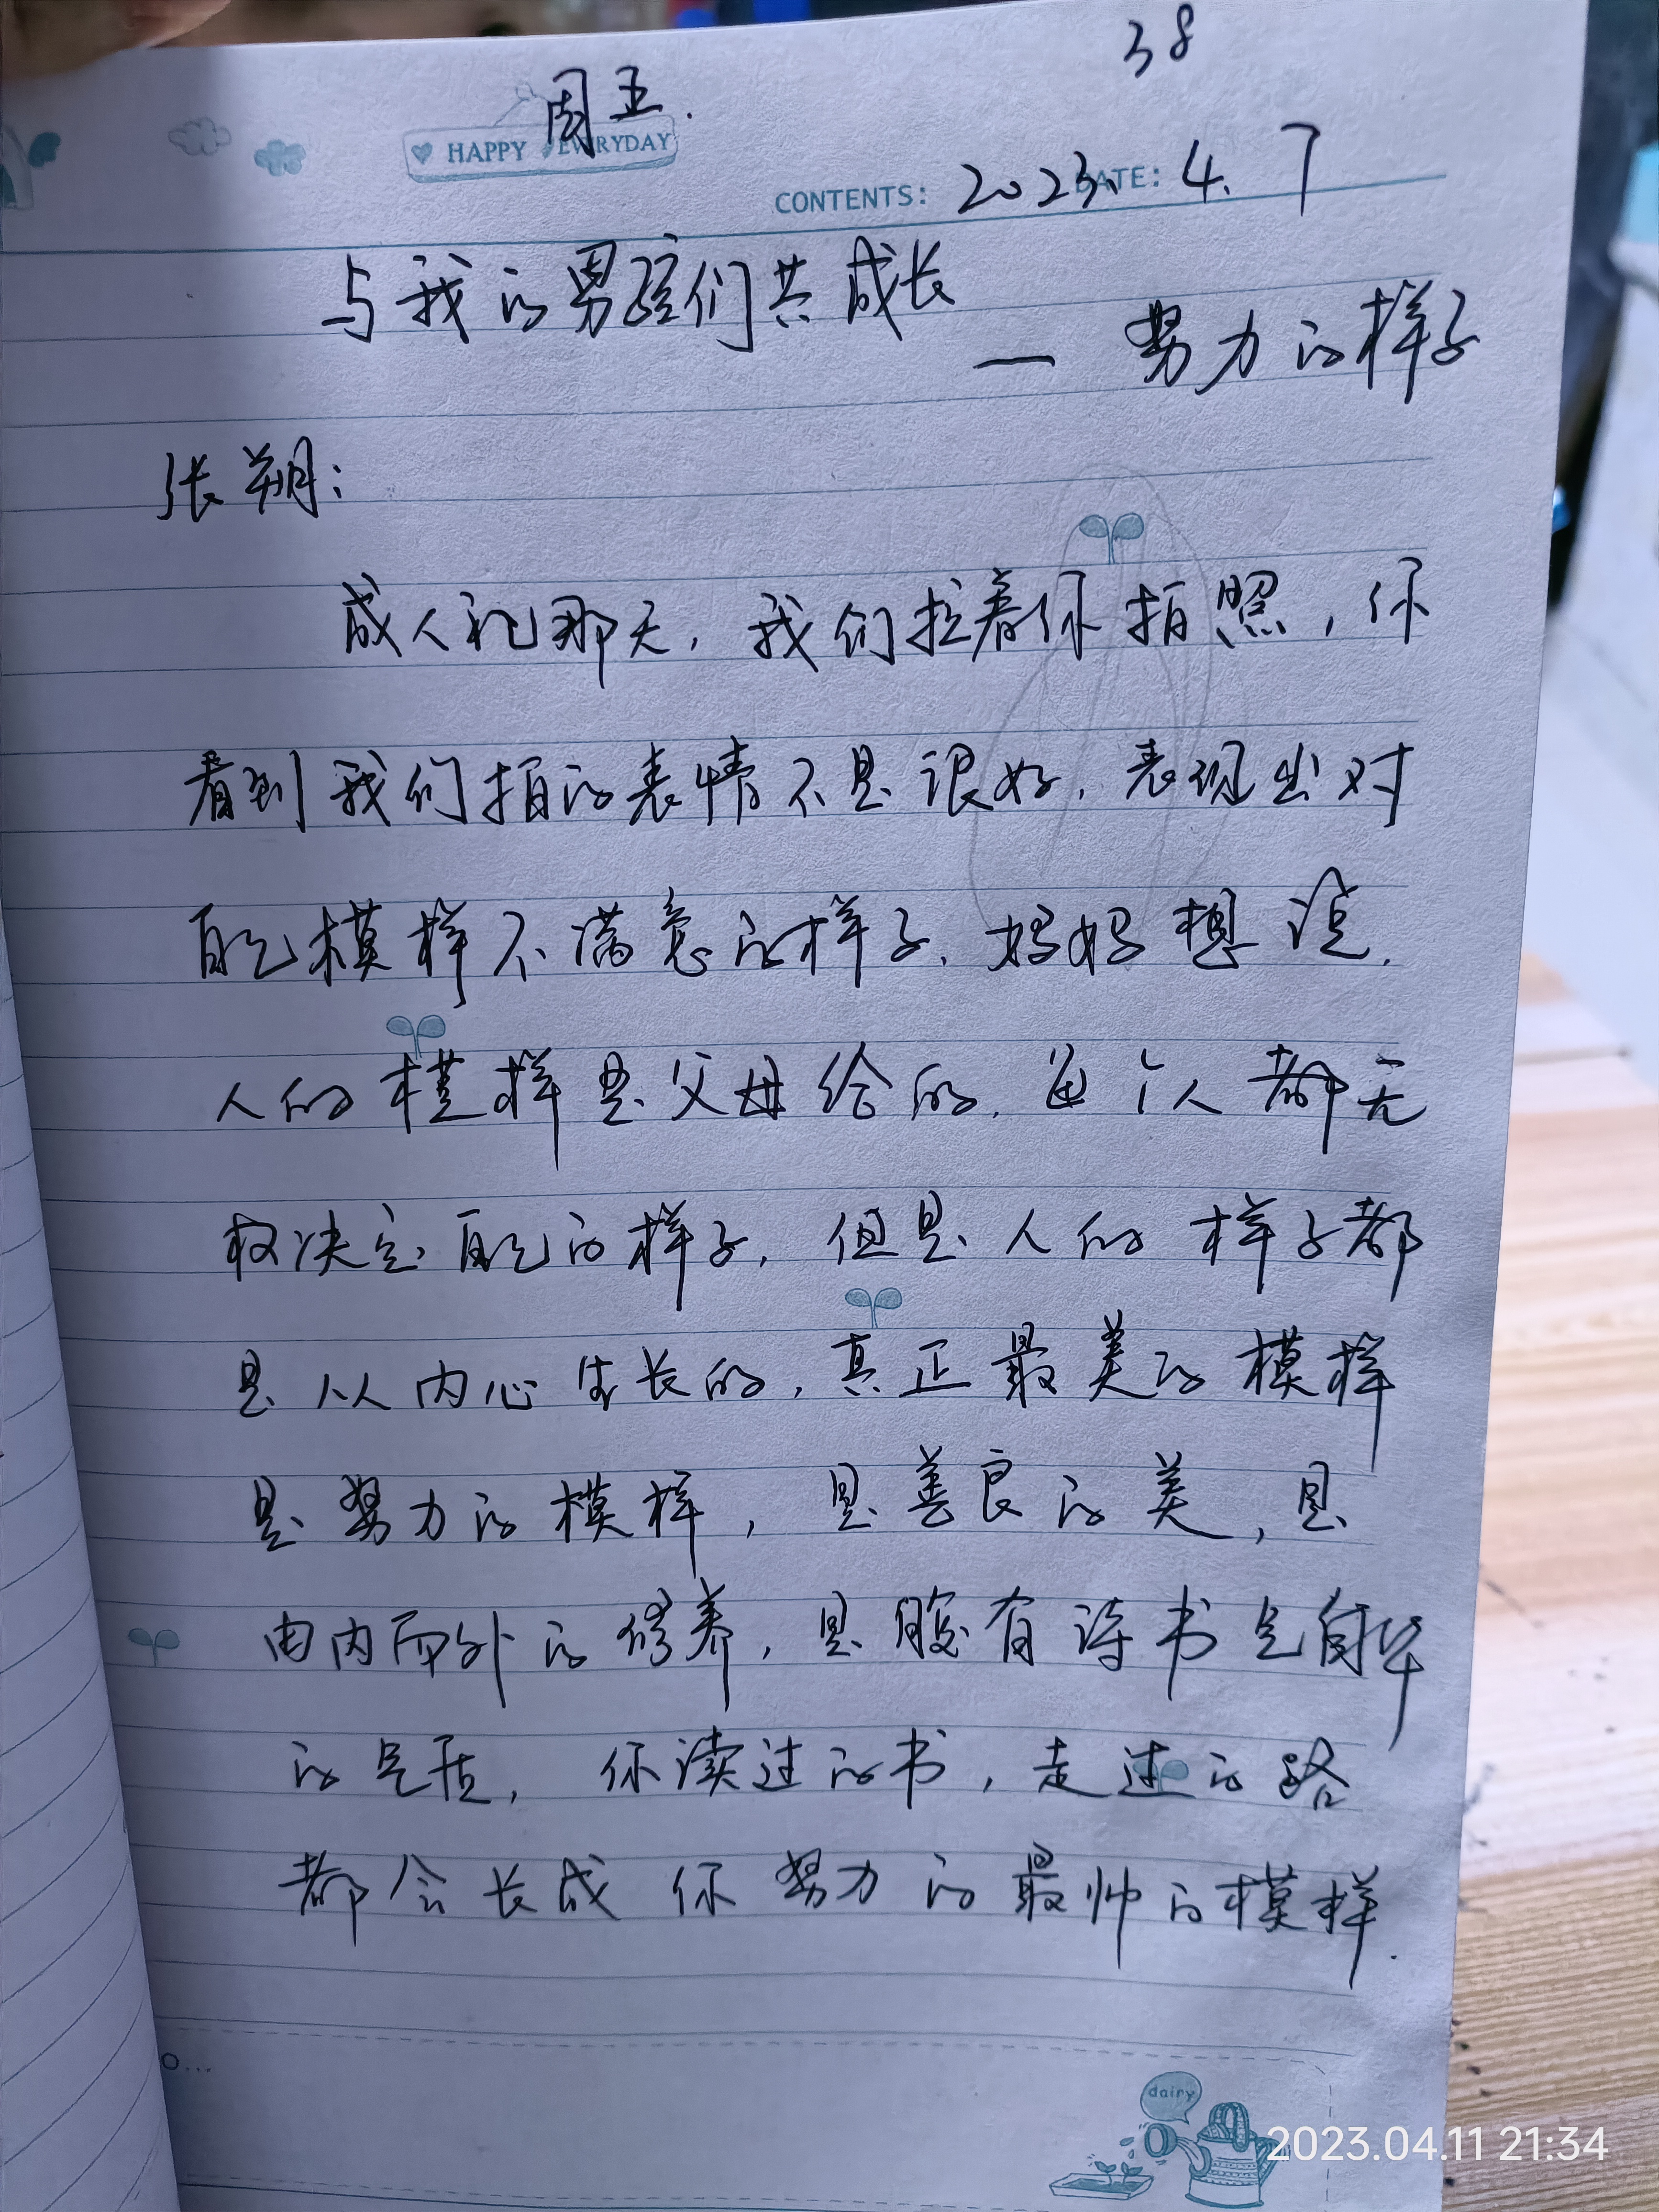 38
周五.
HAPPY EVERYDAY
CONTENTS: 2023. DATE: 4. 7
与我的男孩们共成长
— 努力的样子
张朔：
成人礼那天，我们拉着你拍照，你
看到我们拍的表情不是很好，表现出对
自己模样不满意的样子，妈妈想说，
人的模样是父母给的，每个人都无
权决定自己的样子，但是人的样子都
是从内心生长的，真正最美的模样
是努力的模样，是善良的美，是
由内而外的修养，是腹有诗书气自华
的气质，你读过的书，走过的路
都会长成你努力的最帅的模样.
o...
dairy
2023.04.11 21:34